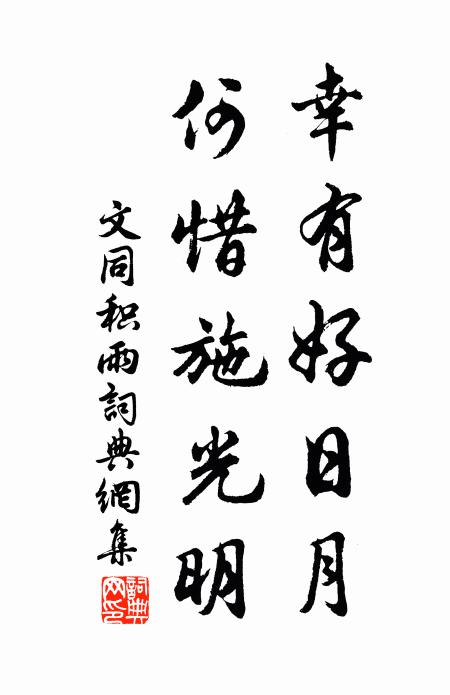 幸有好日月
何惜施光明
文同积雨詞典網集
詞典
网印